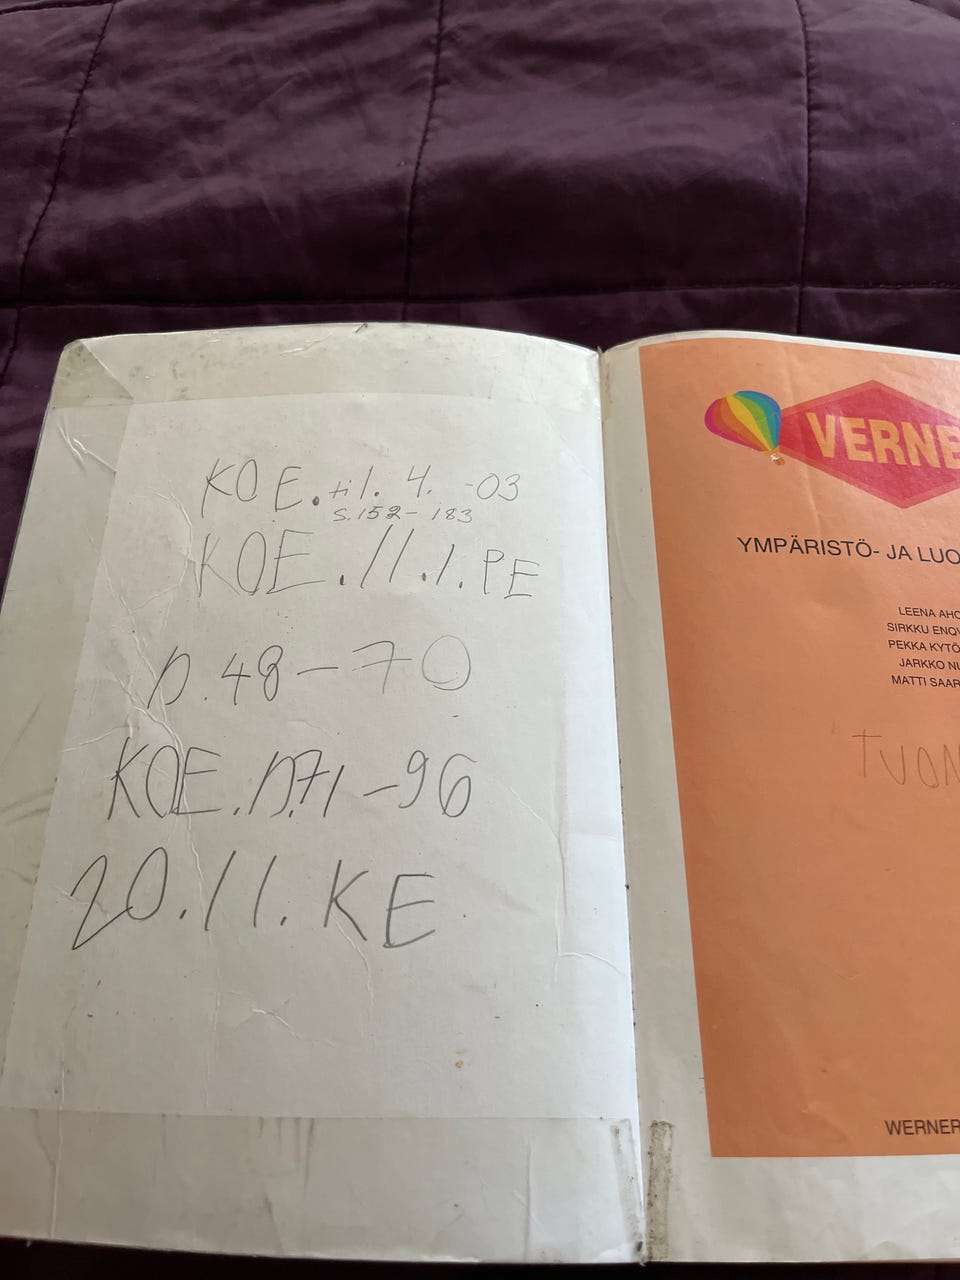 KOE. ti 1. 4. -03
s. 152 - 183
KOE. 11. 1. PE
p. 48 - 70
KOE. p. 71 - 96
20. 11. KE
VERNE
YMPÄRISTÖ- JA LUO
LEENA AHO
SIRKKU ENQV
PEKKA KYTÖ
JARKKO NU
MATTI SAAR
TUON
WERNER